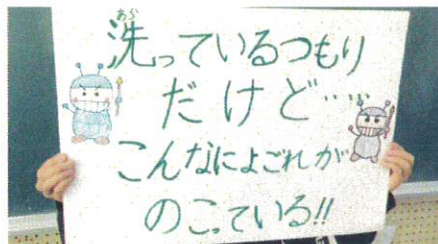 あら
洗っているつもり
だけど……
こんなによごれが
のこっている!!